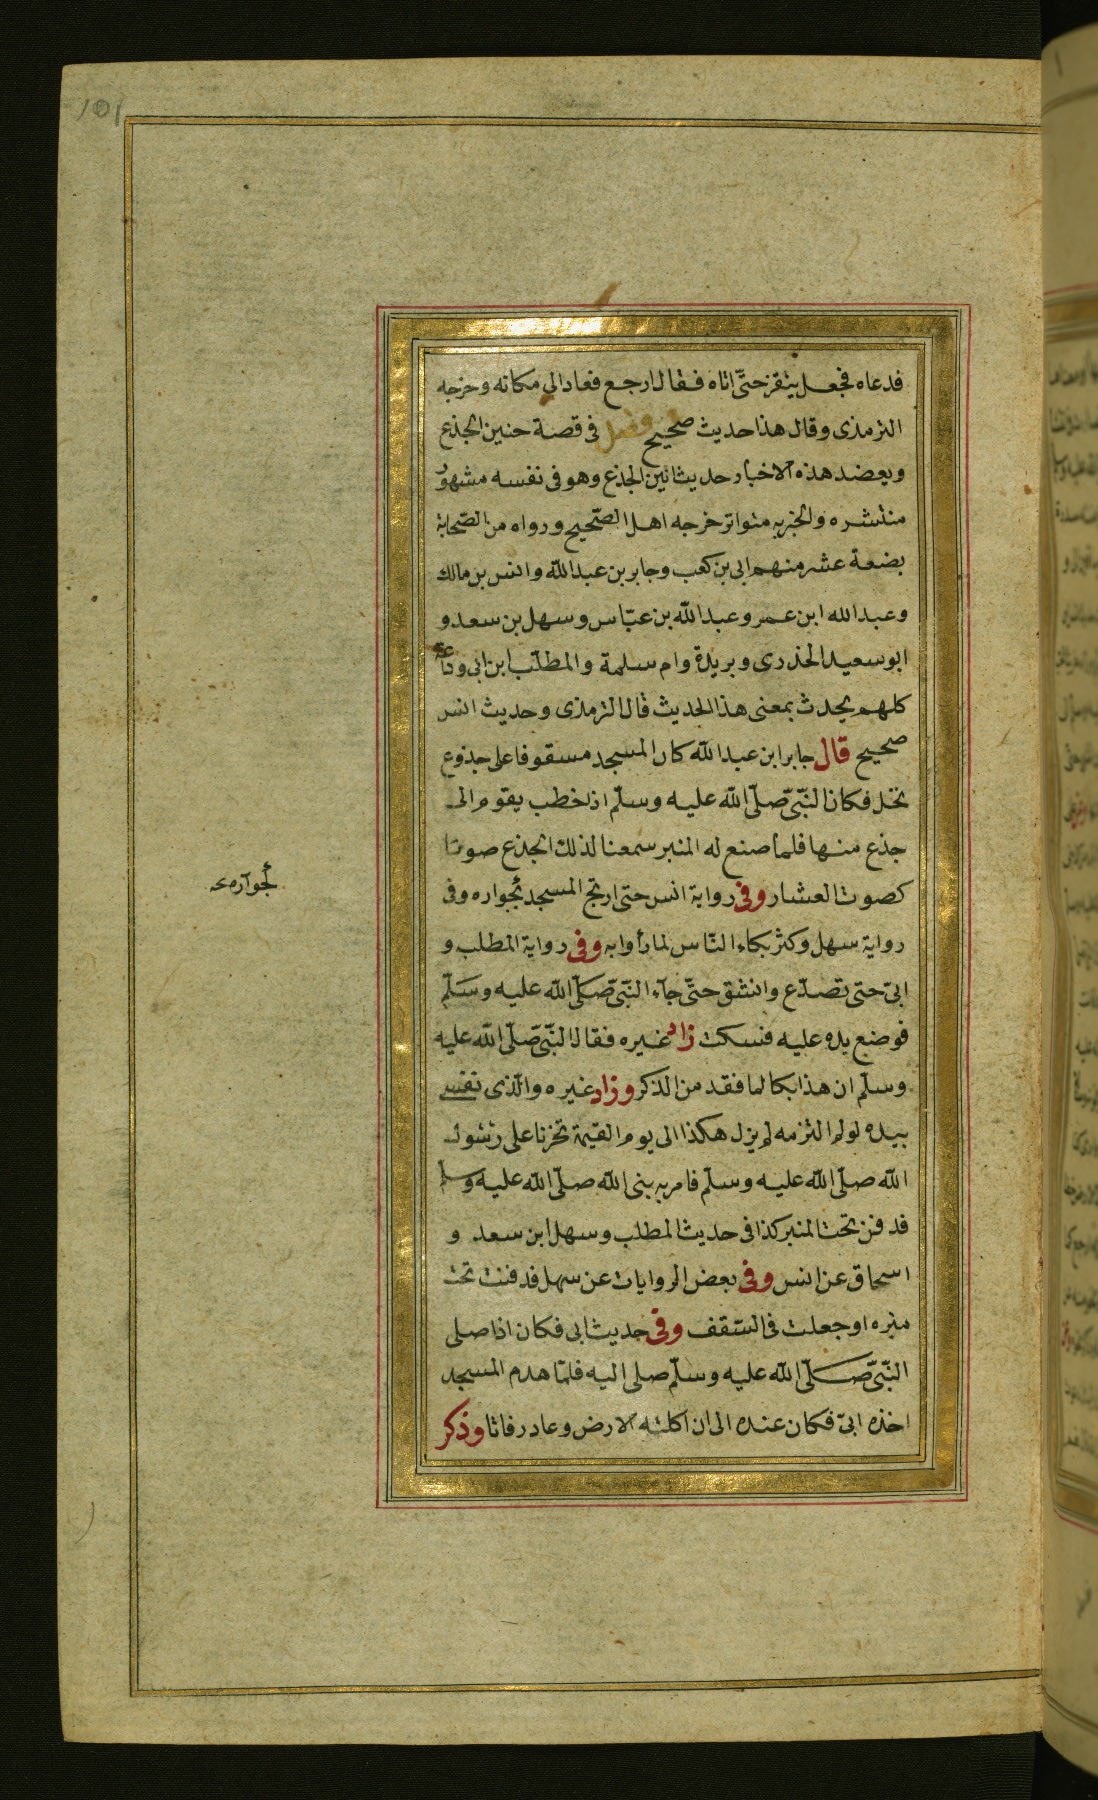 101
فدعاه فجعل ينقز حتّى اتاه فقال ارجع فعاد الى مكانه وخرجه
الترمذى وقال هذا حديث صحيح فصل فى قصة حنين الجذع
ويعضد هذه الاخبار حديث انين الجذع وهو فى نفسه مشهور
منتشره والخبر به متواتر خرجه اهل الصّحيح ورواه من الصّحابة
بضعة عشر منهم ابى بن كعب وجابر بن عبد اللّه وانس بن مالك
وعبد الله ابن عمر وعبد اللّه بن عبّاس وسهل بن سعد و
ابو سعيد الخذرى وبريدة وام سلمة والمطلّب ابن ابى وداعة
كلهم يحدث بمعنى هذا الحديث قال الترمذى وحديث انس
صحيح قال جابر ابن عبد اللّه كان المسجد مسقوفا على جذوع
نخل فكان النّبىّ صلّى اللّه عليه وسلّم اذا خطب يقوم الى
جذع منها فلما صنع له المنبر سمعنا لذلك الجذع صوتا
كصوت العشار وفى رواية انس حتى ارتج المسجد بجواره وفى
لجوآره
رواية سهل وكثر بكاء النّاس لما رأوا به وفى رواية المطلب و
ابىّ حتى تصدّع وانشق حتّى جآء النّبىّ صَلّى اللّه عليه وسَلّم
فوضع يده عليه فسكت زاد غيره فقال النّبىّ صلّى اللّه عليه
وسلّم ان هذا بكا لما فقد من الذكر وزاد غيره والّذى نفسى
بيده لو لم التزمه لم يزل هكذا الى يوم القيمة تحزنا على رسول
اللّه صلّى اللّه عليه وسلّم فامر به نبى اللّه صلّى اللّه عليه وسلم
فدفن تحت المنبر كذا فى حديث المطلب وسهل ابن سعد و
اسحاق عن انس وفى بعض الروايات عن سهل فدفنت تحت
منبره او جعلت فى السّقف وفى حديث ابى فكان اذا صلى
النّبىّ صَلّى اللّه عليه وسلّم صلى اليه فلمّا هدم المسجد
اخذه ابىّ فكان عنده الى ان اكلته الارض وعاد رفاتا وذكر